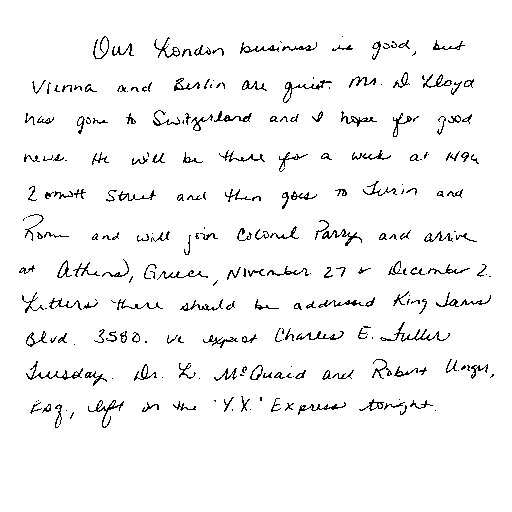 Our London business is good, but
Vienna and Berlin are quiet. Mr. D. Lloyd
has gone to Switzerland and I hope for good
news. He will be there for a week at 1496
Zermott Street and then goes to Turin and
Rome and will join Colonel Parry and arrive
at Athens, Greece, November 27 or December 2.
Letters there should be addressed King James
Blvd. 3580. We expect Charles E. Fuller
Tuesday. Dr. L. McQuaid and Robert Unger,
Esq., left on the 'Y.X.' Express tonight.